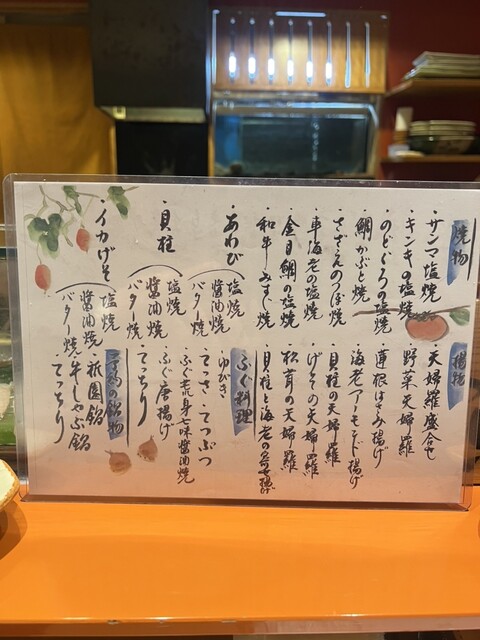 焼物
・サンマ塩焼
・キンキの塩焼
・のどぐろの塩焼
・鯛かぶと焼
・さざえのつぼ焼
・車海老の塩焼
・金目鯛の塩焼
・和牛みすじ焼
・あわび
塩焼
醤油焼
バター焼
・貝柱
塩焼
醤油焼
バター焼
・イカげそ
塩焼
醤油焼
バター焼
揚物
・天婦羅盛合せ
・野菜天婦羅
・蓮根はさみ揚げ
・海老アーモンド揚げ
・貝柱の天婦羅
・げその天婦羅
・松茸の天婦羅
・貝柱と海老の寄せ揚げ
ふぐ料理
・ゆびき
・てっさ・てつぶつ
・ふぐ荒身七味醤油焼
・ふぐ唐揚げ
・てっちり
予約の鍋物
・祇園鍋
・牛しゃぶ鍋
・てっちり